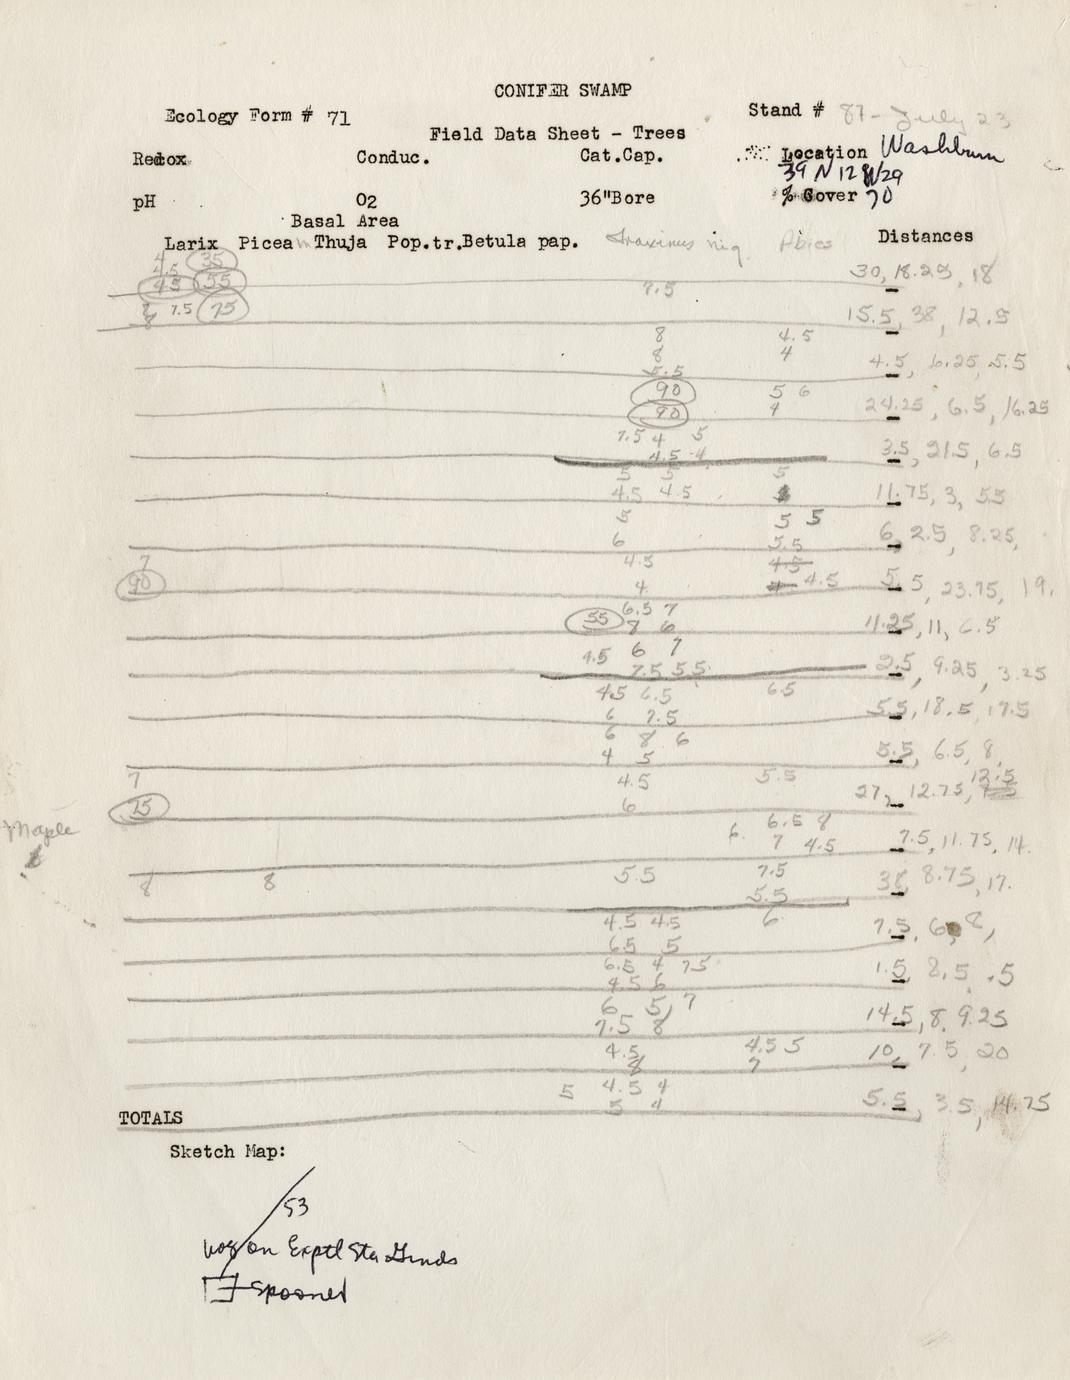 CONIFER SWAMP
Ecology Form # 71
Stand # 87 - July 23
Field Data Sheet - Trees
Redox Conduc. Cat.Cap. Location Washburn
39 N 12 W 29
pH O2 36"Bore % Cover 70
Basal Area
Larix Picea Thuja Pop.tr. Betula pap. Fraxinus nig. Abies Distances
4 35
4.5
45 55 7.5 30, 18.25, 18
8 7.5 75 15.5, 38, 12.5
8
8 4.5
8 4 4.5, 6.25, 5.5
5.5
90 5 6
90 4 24.25, 6.5, 16.25
7.5 4 5
4.5 4 3.5, 21.5, 6.5
5 5 5
4.5 4.5 11.75, 3, 5.5
5 5 5
6 5.5 6, 2.5, 8.25,
7 4.5 4.5
90 4 4 4.5 5.5, 23.75, 19.
6.5 7
55 8 6 11.25, 11, 6.5
4.5 6 7
7.5 5.5 2.5, 9.25, 3.25
4.5 6.5 6.5
6 7.5 5.5, 18.5, 17.5
6 8 6
4 5 5.5, 6.5, 8,
7 4.5 5.5 12.5
75 6 27, 12.75,
Maple 6.5 8
6. 7 4.5 7.5, 11.75, 14.
8 8 5.5 7.5 38, 8.75, 17.
5.5
4.5 4.5 6 7.5, 6, 8,
6.5 5
6.5 4 7.5 1.5, 8.5, .5
4.5 6
6 5, 7
7.5 8 14.5, 8, 9.25
4.5 4.5 5 10, 7.5, 20
8 7
5 4.5 4
5 4 5.5, 3.5, 14.75
TOTALS
Sketch Map:
53
on Exptl Sta Grnds
Spooner